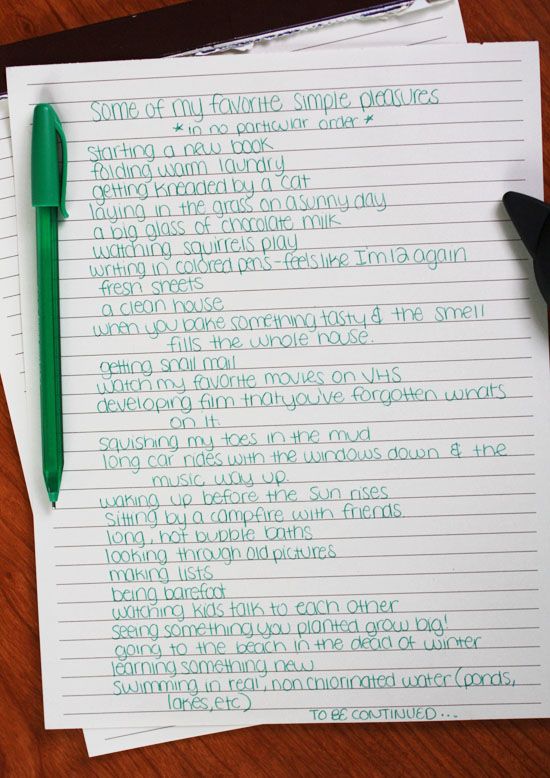 some of my favorite simple pleasures
*in no particular order*
starting a new book
folding warm laundry
getting kneaded by a cat
laying in the grass on a sunny day
a big glass of chocolate milk
watching squirrels play
writing in colored pens-feels like I'm 12 again
fresh sheets
a clean house
when you bake something tasty & the smell
fills the whole house.
getting snail mail
watch my favorite movies on VHS
developing film that you've forgotten whats
on it.
squishing my toes in the mud
long car rides with the windows down & the
music way up.
waking up before the sun rises
sitting by a campfire with friends.
long, hot bubble baths
looking through old pictures
making lists
being barefoot
watching kids talk to each other
seeing something you planted grow big!
going to the beach in the dead of winter
learning something new
swimming in real, non chlorinated water (ponds,
lakes, etc)
TO BE CONTINUED...